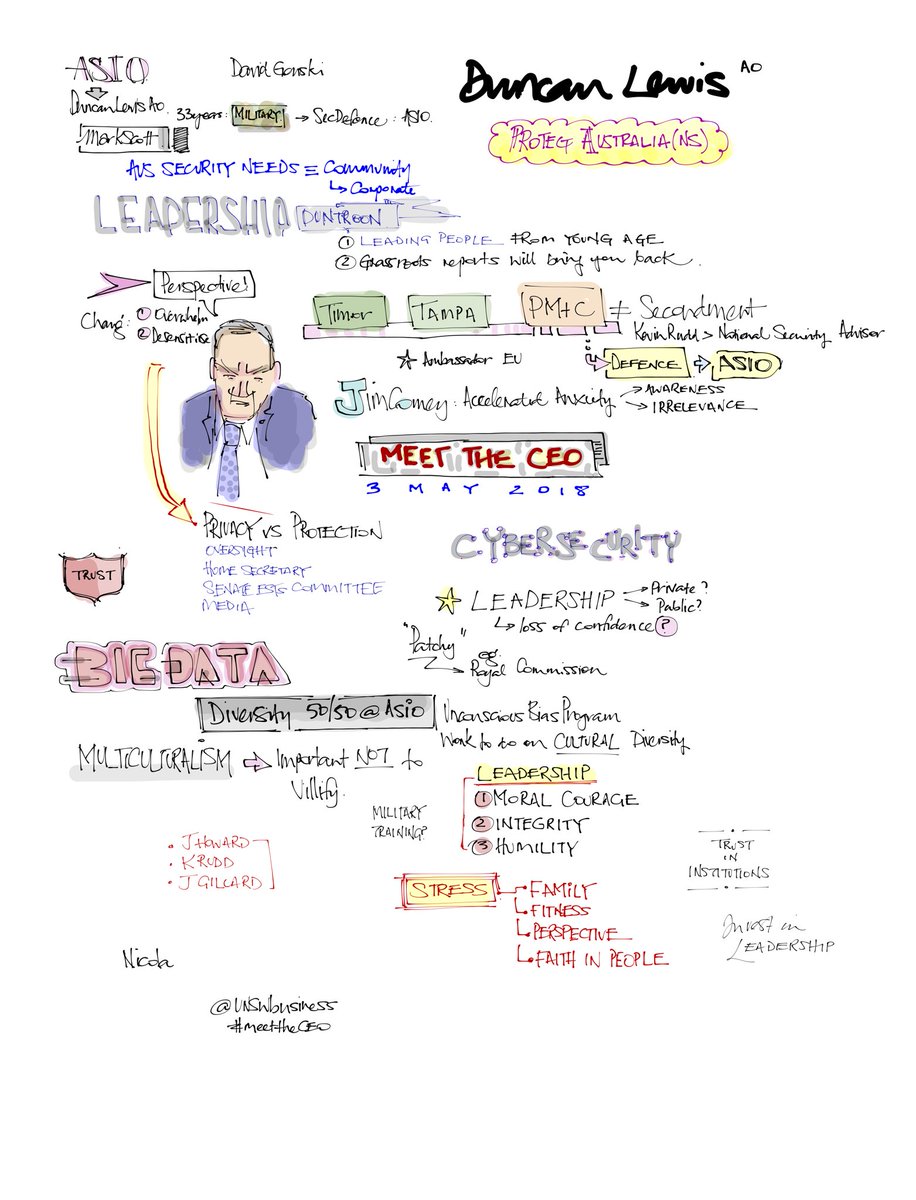 ASIO
David Gonski
Duncan Lewis AO
Duncan Lewis AO.
33 years: MILITARY → SecDefence: ASIO.
Mark Scott
PROTECT AUSTRALIA(NS)
AUS SECURITY NEEDS = Community
↳ Corporate
LEADERSHIP DUNTROON
① LEADING PEOPLE FROM YOUNG AGE
② Grassroots reports will bring you back.
Perspective!
① Overwhelm
② Desensitise
Timor TAMPA PM+C ≠ Secondment
Kevin Rudd > National Security Advisor
☆ Ambassador EU
DEFENCE ASIO
Jim Comey: Accelerated Anxiety
→ AWARENESS
→ IRRELEVANCE
MEET THE CEO
3 MAY 2018
• PRIVACY VS PROTECTION
OVERSIGHT
HOME SECRETARY
SENATE ESTS COMMITTEE
MEDIA
TRUST
CYBERSECURITY
LEADERSHIP → Private?
→ Public?
↳ loss of confidence ?
"Patchy"
eg.
Royal Commission
BIG DATA
Diversity 50/50 @ ASIO
Unconscious Bias Program
Work to do on CULTURAL Diversity
MULTICULTURALISM ⇨ Important NOT to
Villify.
LEADERSHIP
① MORAL COURAGE
② INTEGRITY
③ HUMILITY
MILITARY
TRAINING?
• J HOWARD
• K RUDD
• J GILLARD
TRUST
IN
INSTITUTIONS
STRESS
FAMILY
FITNESS
PERSPECTIVE
FAITH IN PEOPLE
Invest in
LEADERSHIP
Nicola
@UNSWbusiness
#meettheCEO